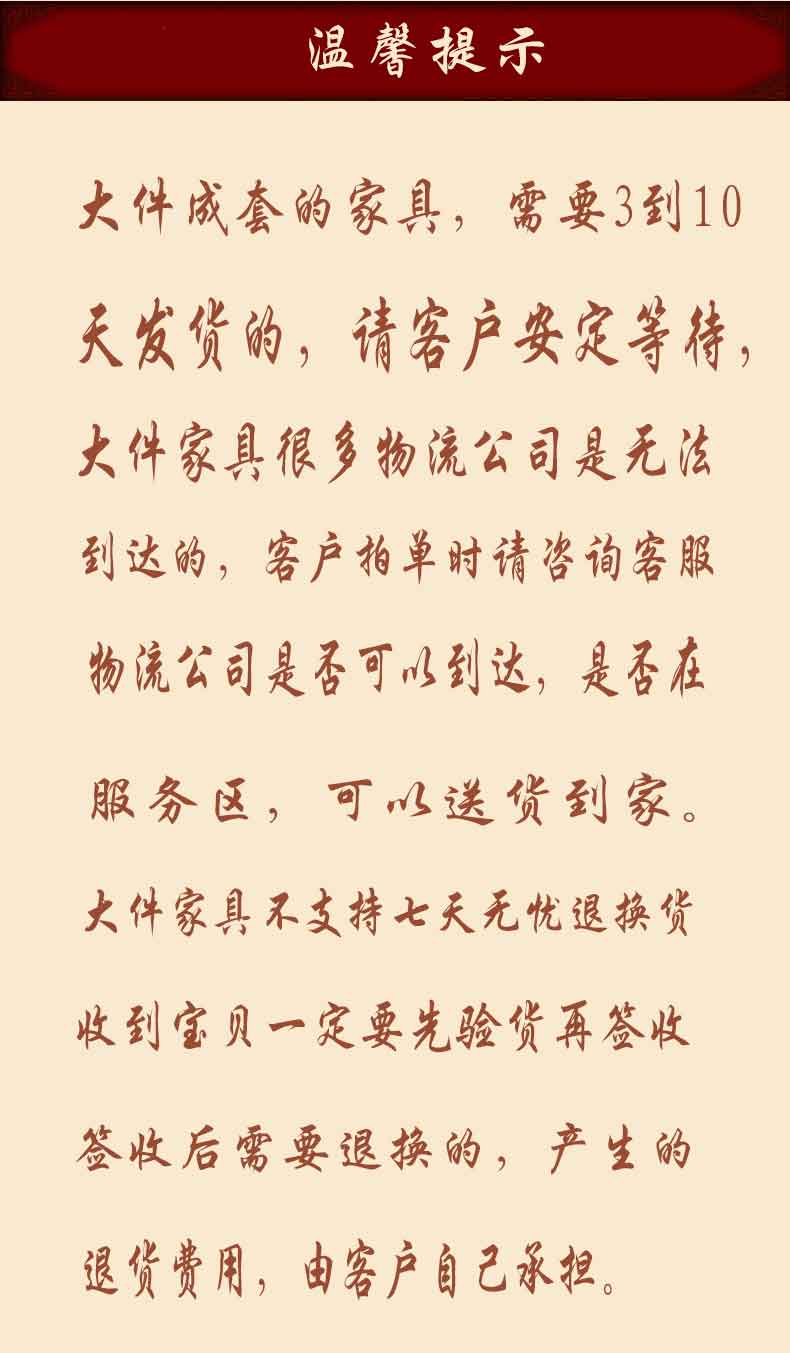 温馨提示
大件成套的家具，需要3到10
天发货的，请客户安定等待，
大件家具很多物流公司是无法
到达的，客户拍单时请咨询客服
物流公司是否可以到达，是否在
服务区，可以送货到家。
大件家具不支持七天无忧退换货
收到宝贝一定要先验货再签收
签收后需要退换的，产生的
退货费用，由客户自己承担。